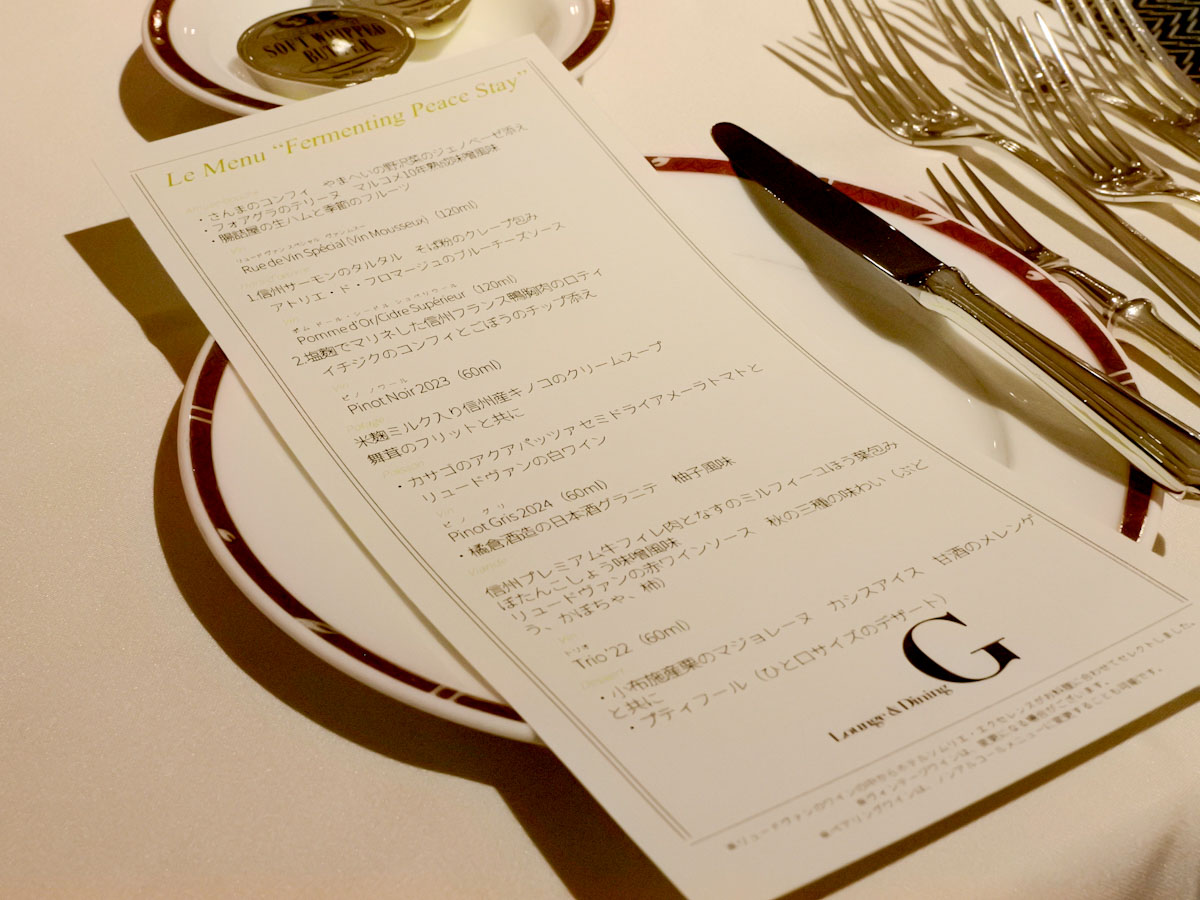 SOFT WHIPPED
BUTTER
Le Menu “Fermenting Peace Stay”
・さんまのコンフィ　やまへいの野沢菜のジェノベーゼ添え
・フォアグラのテリーヌ　マルコメ10年熟成味噌風味
・腸詰屋の生ハムと季節のフルーツ
リュードヴァン スペシャル ヴァンムスー
Rue de Vin Spécial (Vin Mousseux)（120ml）
1.信州サーモンのタルタル　そば粉のクレープ包み
アトリエ・ド・フロマージュのブルーチーズソース
Vin
ポム ドール・シードル シュペリウール
Pomme d'Or/Cidre Supérieur（120ml）
2.塩麹でマリネした信州フランス鴨胸肉のロティ
イチジクのコンフィとごぼうのチップ添え
Vin
ピノ ノワール
Pinot Noir 2023（60ml）
Potage
米麹ミルク入り信州産キノコのクリームスープ
舞茸のフリットと共に
Poisson
・カサゴのアクアパッツァセミドライアメーラトマトと
リュードヴァンの白ワイン
Vin
ピノ グリ
Pinot Gris 2024（60ml）
・橘倉酒造の日本酒グラニテ　柚子風味
Viande
信州プレミアム牛フィレ肉となすのミルフィーユほう葉包み
ぼたんこしょう味噌風味
リュードヴァンの赤ワインソース　秋の三種の味わい（ぶど
う、かぼちゃ、柿）
Vin
トリオ
Trio '22（60ml）
Dessert
・小布施産栗のマジョレーヌ　カシスアイス　甘酒のメレンゲ
と共に
・プティフール（ひと口サイズのデザート）
G
Lounge & Dining
※リュードヴァンのワインの中からホテルソムリエ・エクセレンスがお料理に合わせてセレクトしました。
※ヴィンテージワインは、変更になる場合がございます。
※ペアリングワインは、ノンアルコールメニューに変更することも可能です。